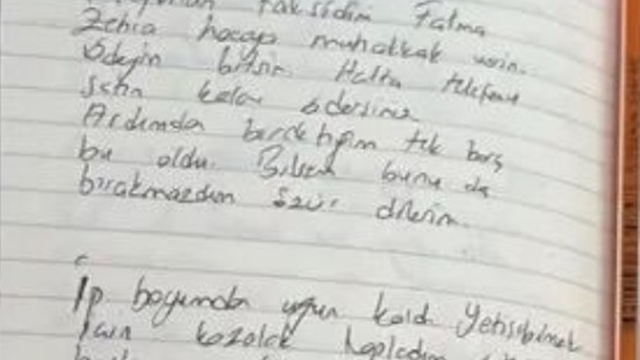 taksidim Fatma
Zehra hocaya muhakkak verin.
Ödeyin bitsin. Hatta telefonu
satın kalanı ödersiniz
Ardımda bıraktığım tek borç
bu oldu. Bilsem bunu da
bırakmazdım özür dilerim.
İp boyumdan uzun kaldı Yetişebilmek
için kozalak topladım